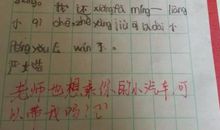 我 还 xiǎng fā míng 一 liàng
小 qì chē, zhè yàng jiù kě yǐ dài 小
péng yǒu 去 wán 了。
老师也想乘你的小汽车,可
以带我吗?